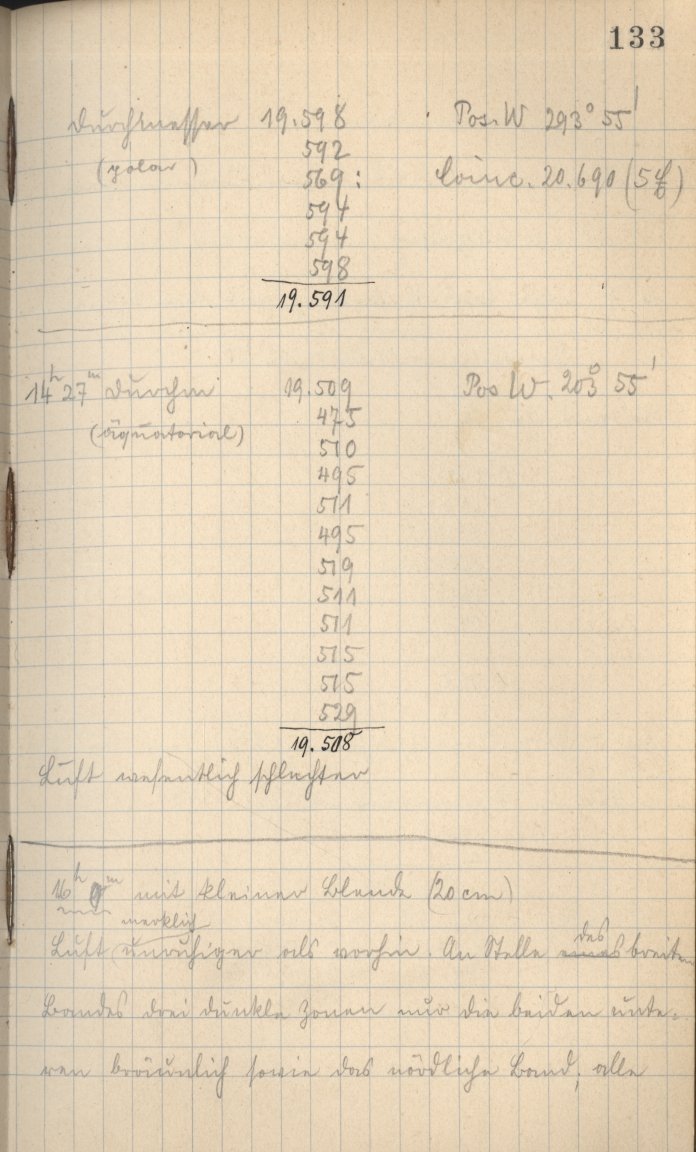 133
Durchmesser 19.598 Pos. W 293° 55'
(polar) 592
569: Coinc. 20.690 (5
594
594
598
19.591
14h 27m Durchm 19.509 Pos W. 203° 55'
(äquatorial) 475
510
495
511
495
519
511
511
515
515
529
19.508
Luft wesentlich schlechter
16h 0m mit kleiner Blende (20 cm)
merklich
Luft unruhiger als vorhin. An Stelle eines des breiten
Bandes drei dunkle Zonen nur die beiden unte-
ren bräunlich sowie das nördliche Band; alle